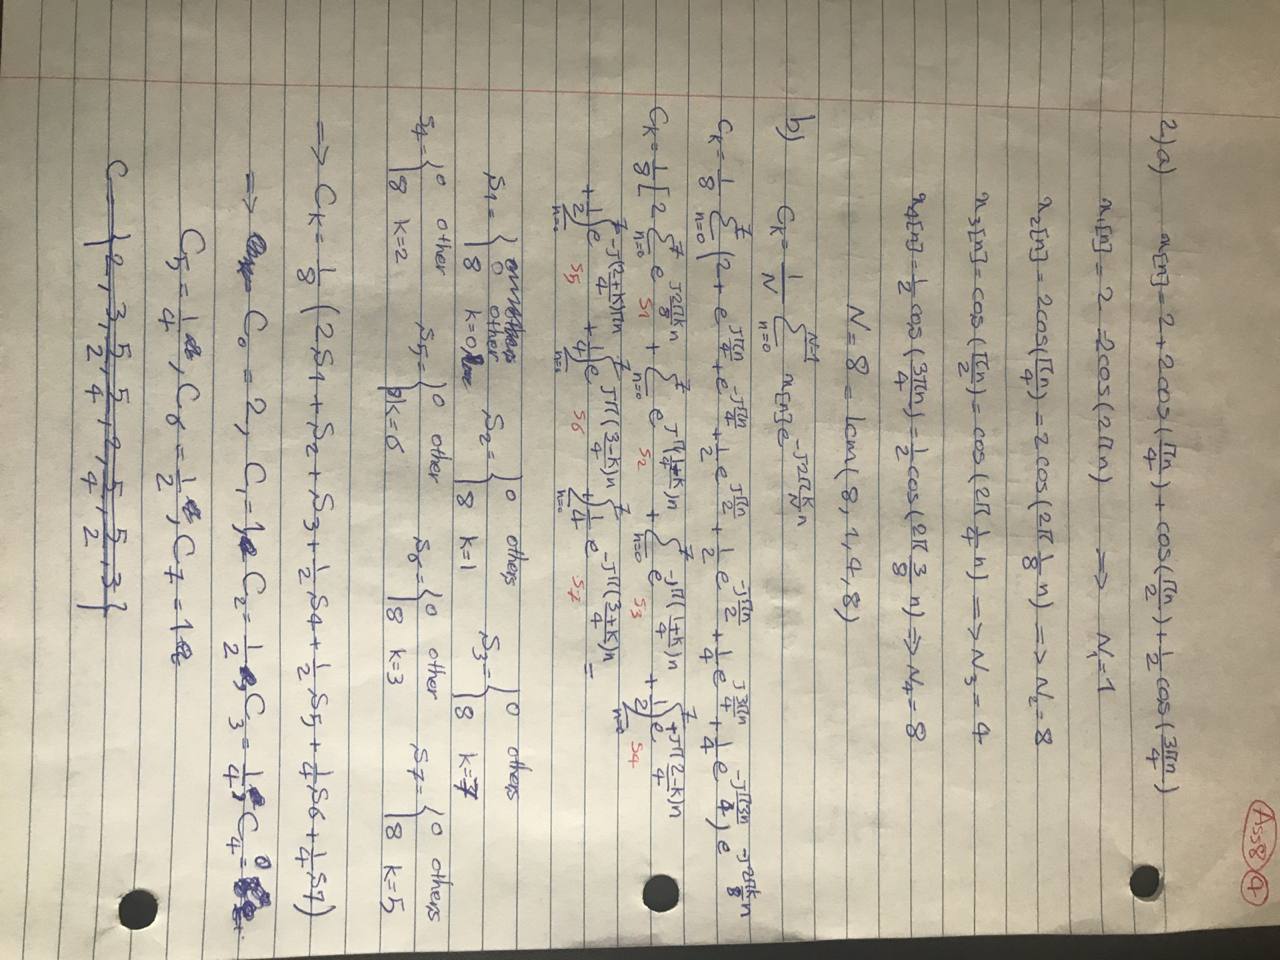 Ass8 4
2) a) x[n] = 2 + 2cos(πn/4) + cos(πn/2) + 1/2 cos(3πn/4)
x1[n] = 2 = 2cos(2πn) => N1 = 1
x2[n] = 2cos(πn/4) = 2cos(2π 1/8 n) => N2 = 8
x3[n] = cos(πn/2) = cos(2π 1/4 n) => N3 = 4
x4[n] = 1/2 cos(3πn/4) = 1/2 cos(2π 3/8 n) => N4 = 8
N = 8 = lcm(8, 1, 4, 8)
b) CK = 1/N Σ_{n=0}^{N-1} x[n] e^{-j2π k/N n}
CK = 1/8 Σ_{n=0}^{7} (2 + e^{jπn/4} + e^{-jπn/4} + 1/2 e^{jπn/2} + 1/2 e^{-jπn/2} + 1/4 e^{j3πn/4} + 1/4 e^{-jπ3n/4}) e^{-j2πk/8 n}
CK = 1/8 [2 Σ_{n=0}^{7} e^{j2πkn/8} + Σ_{n=0}^{7} e^{jπ(1-k)n/4} + Σ_{n=0}^{7} e^{-jπ(1+k)n/4} + 1/2 Σ_{n=0}^{7} e^{+jπ(2-k)n/4}
S1 S2 S3 S4
+ 1/2 Σ_{n=0}^{7} e^{-j(2+k)πn/4} + 1/4 Σ_{n=0}^{7} e^{jπ(3-k)n/4} + 1/4 Σ_{n=0}^{7} e^{-jπ(3+k)n/4} =
S5 S6 S7
S1 = { 0 other S2 = { 0 others S3 = { 0 others
8 k=0 8 k=1 8 k=7
S4 = { 0 other S5 = { 0 other S6 = { 0 other S7 = { 0 others
8 k=2 8 k=6 8 k=3 8 k=5
=> CK = 1/8 (2S1 + S2 + S3 + 1/2 S4 + 1/2 S5 + 1/4 S6 + 1/4 S7)
=> C0 = 2, C1 = 1, C2 = 1/2, C3 = 1/4, C4 = 0
C5 = 1/4, C6 = 1/2, C7 = 1
C = {2, 3, 5/2, 5/4, 2, 5/4, 5/2, 3}